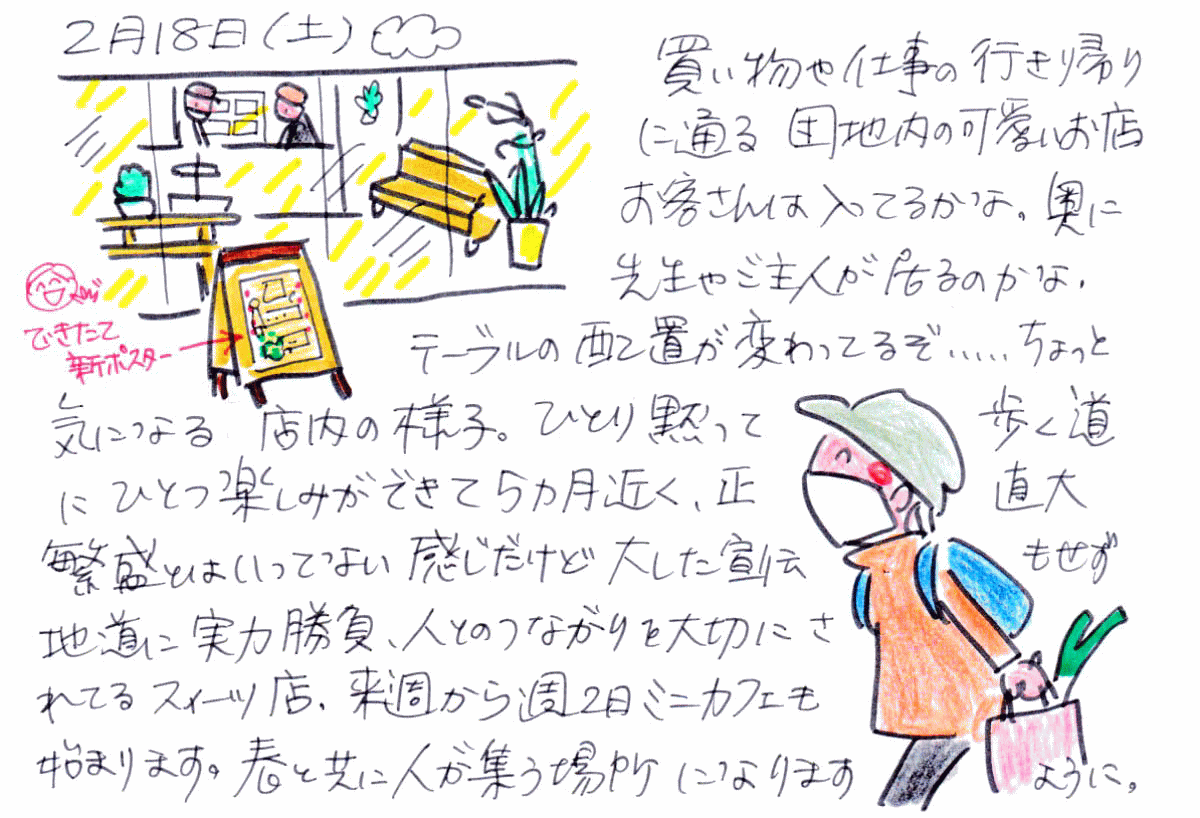 2月18日(土)
買い物や仕事の行き帰り
に通る 団地内の可愛いお店
お客さんは入ってるかな。奥に
先生やご主人が居るのかな、
できたて
新ポスター
テーブルの配置が変わってるぞ……ちょっと
気になる 店内の様子。ひとり黙って 歩く道
にひとつ楽しみができて5カ月近く、正直大
繁盛とはいってない感じだけど 大した宣伝もせず
地道に実力勝負、人とのつながりを大切にさ
れてるスィーツ店、来週から週2日ミニカフェも
始まります。春と共に人が集う場所になりますように。